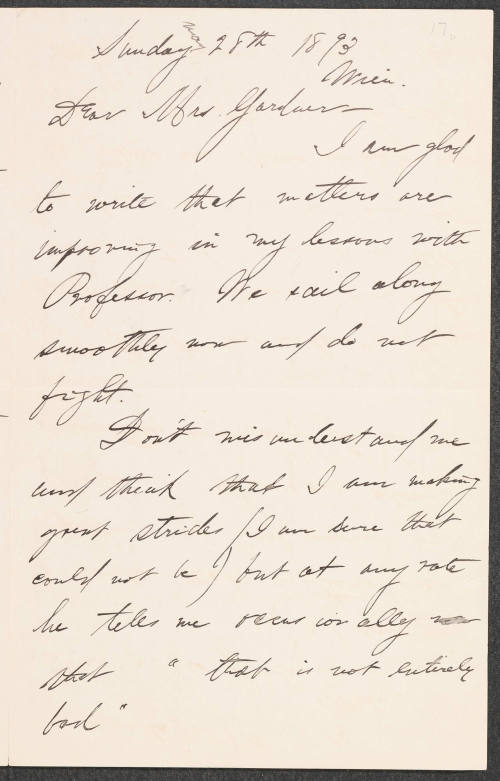 17.
Sunday May 28th 1893
Wien.
Dear Mrs. Gardner—
I am glad
to write that matters are
improving in my lessons with
Professor. We sail along
smoothly now and do not
fight.
Don't misunderstand me
and think that I am making
great strides (I am sure that
could not be) but at any rate
he tells me occasionally
that "that is not entirely
bad"